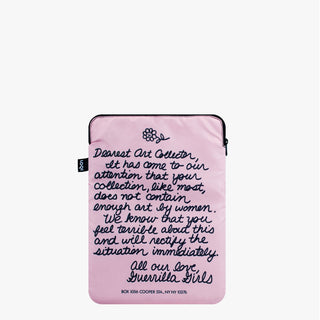 LOQI
Dearest Art Collector,
It has come to our
attention that your
collection, like most,
does not contain
enough art by women.
We know that you
feel terrible about this
and will rectify the
situation immediately.
All our love,
Guerrilla Girls
BOX 1056 COOPER STA., NY NY 10276